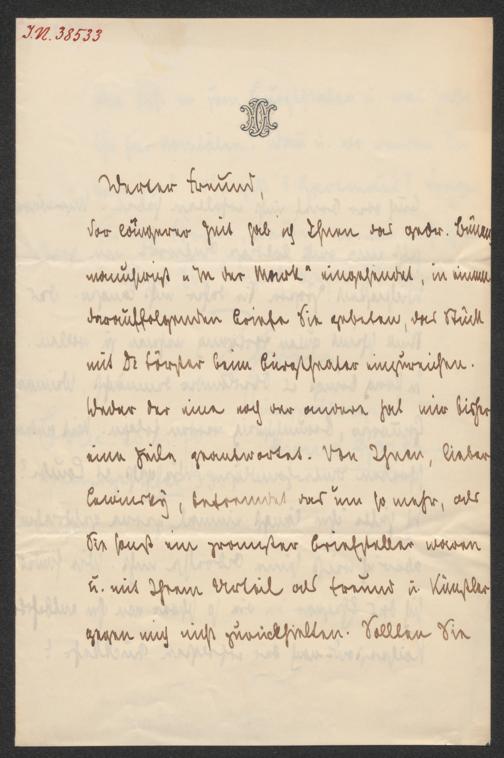 I.N. 38533
Werter Freund,
Vor längerer Zeit hab ich Ihnen das gedr. Bühnen
manuscript „In der Mark“ eingesendet, in einem
darauffolgenden Briefe Sie gebeten, das Stück
mit Dr Förster beim Burgtheater einzureichen.
Weder der eine noch der andere hat mir bisher
eine Zeile geantwortet. Von Ihnen, lieber
Lewinsky, befremdet das um so mehr, als
Sie sonst ein promter Briefsteller waren
u. mit Ihrem Urteil als Freund u. Künstler
gegen mich nicht zurückhielten. Sollten Sie